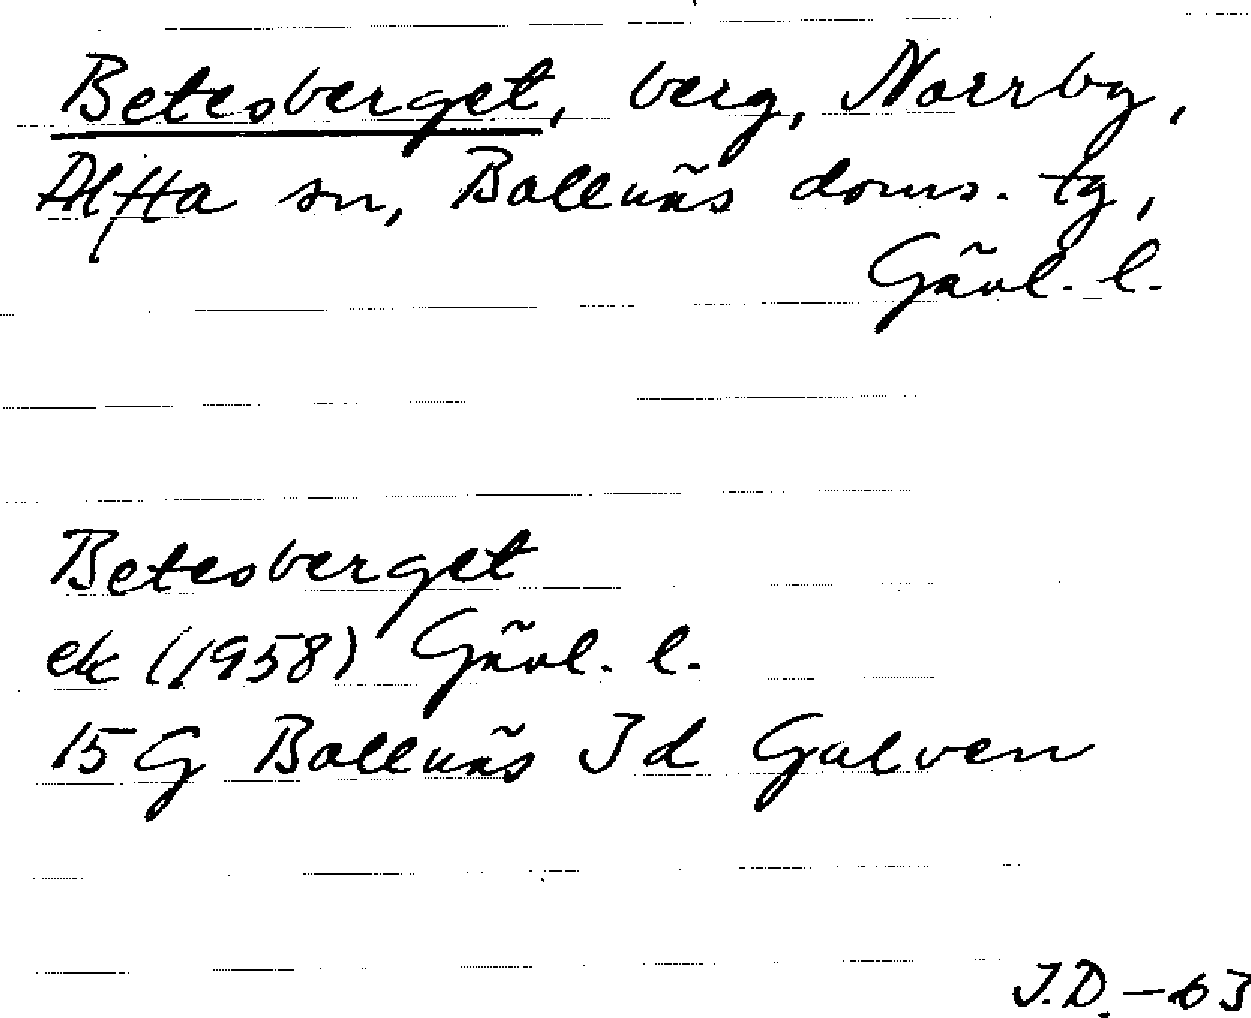 Betesberget, berg, Norrby,
Alfta sn, Bollnäs doms. tg,
Gävl. l.
Betesberget
ek (1958) Gävl. l.
15 G Bollnäs J d Galven
J.D. - 63